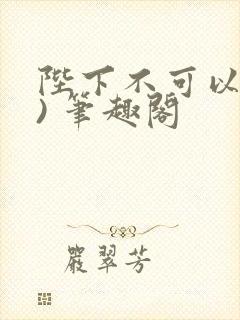 陛下不可以
) 筆趣閣
嚴翠芳